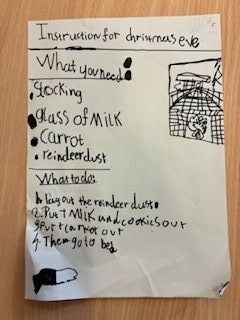 Instruction for christmas eve
What you need:
• Stocking
• glass of MILK
• Carrot
• reindeer dust
What to do:
1. lay out the reindeer dust.
2. PuT MILK and cookies out
3. put carrot out
4. Then go to bed